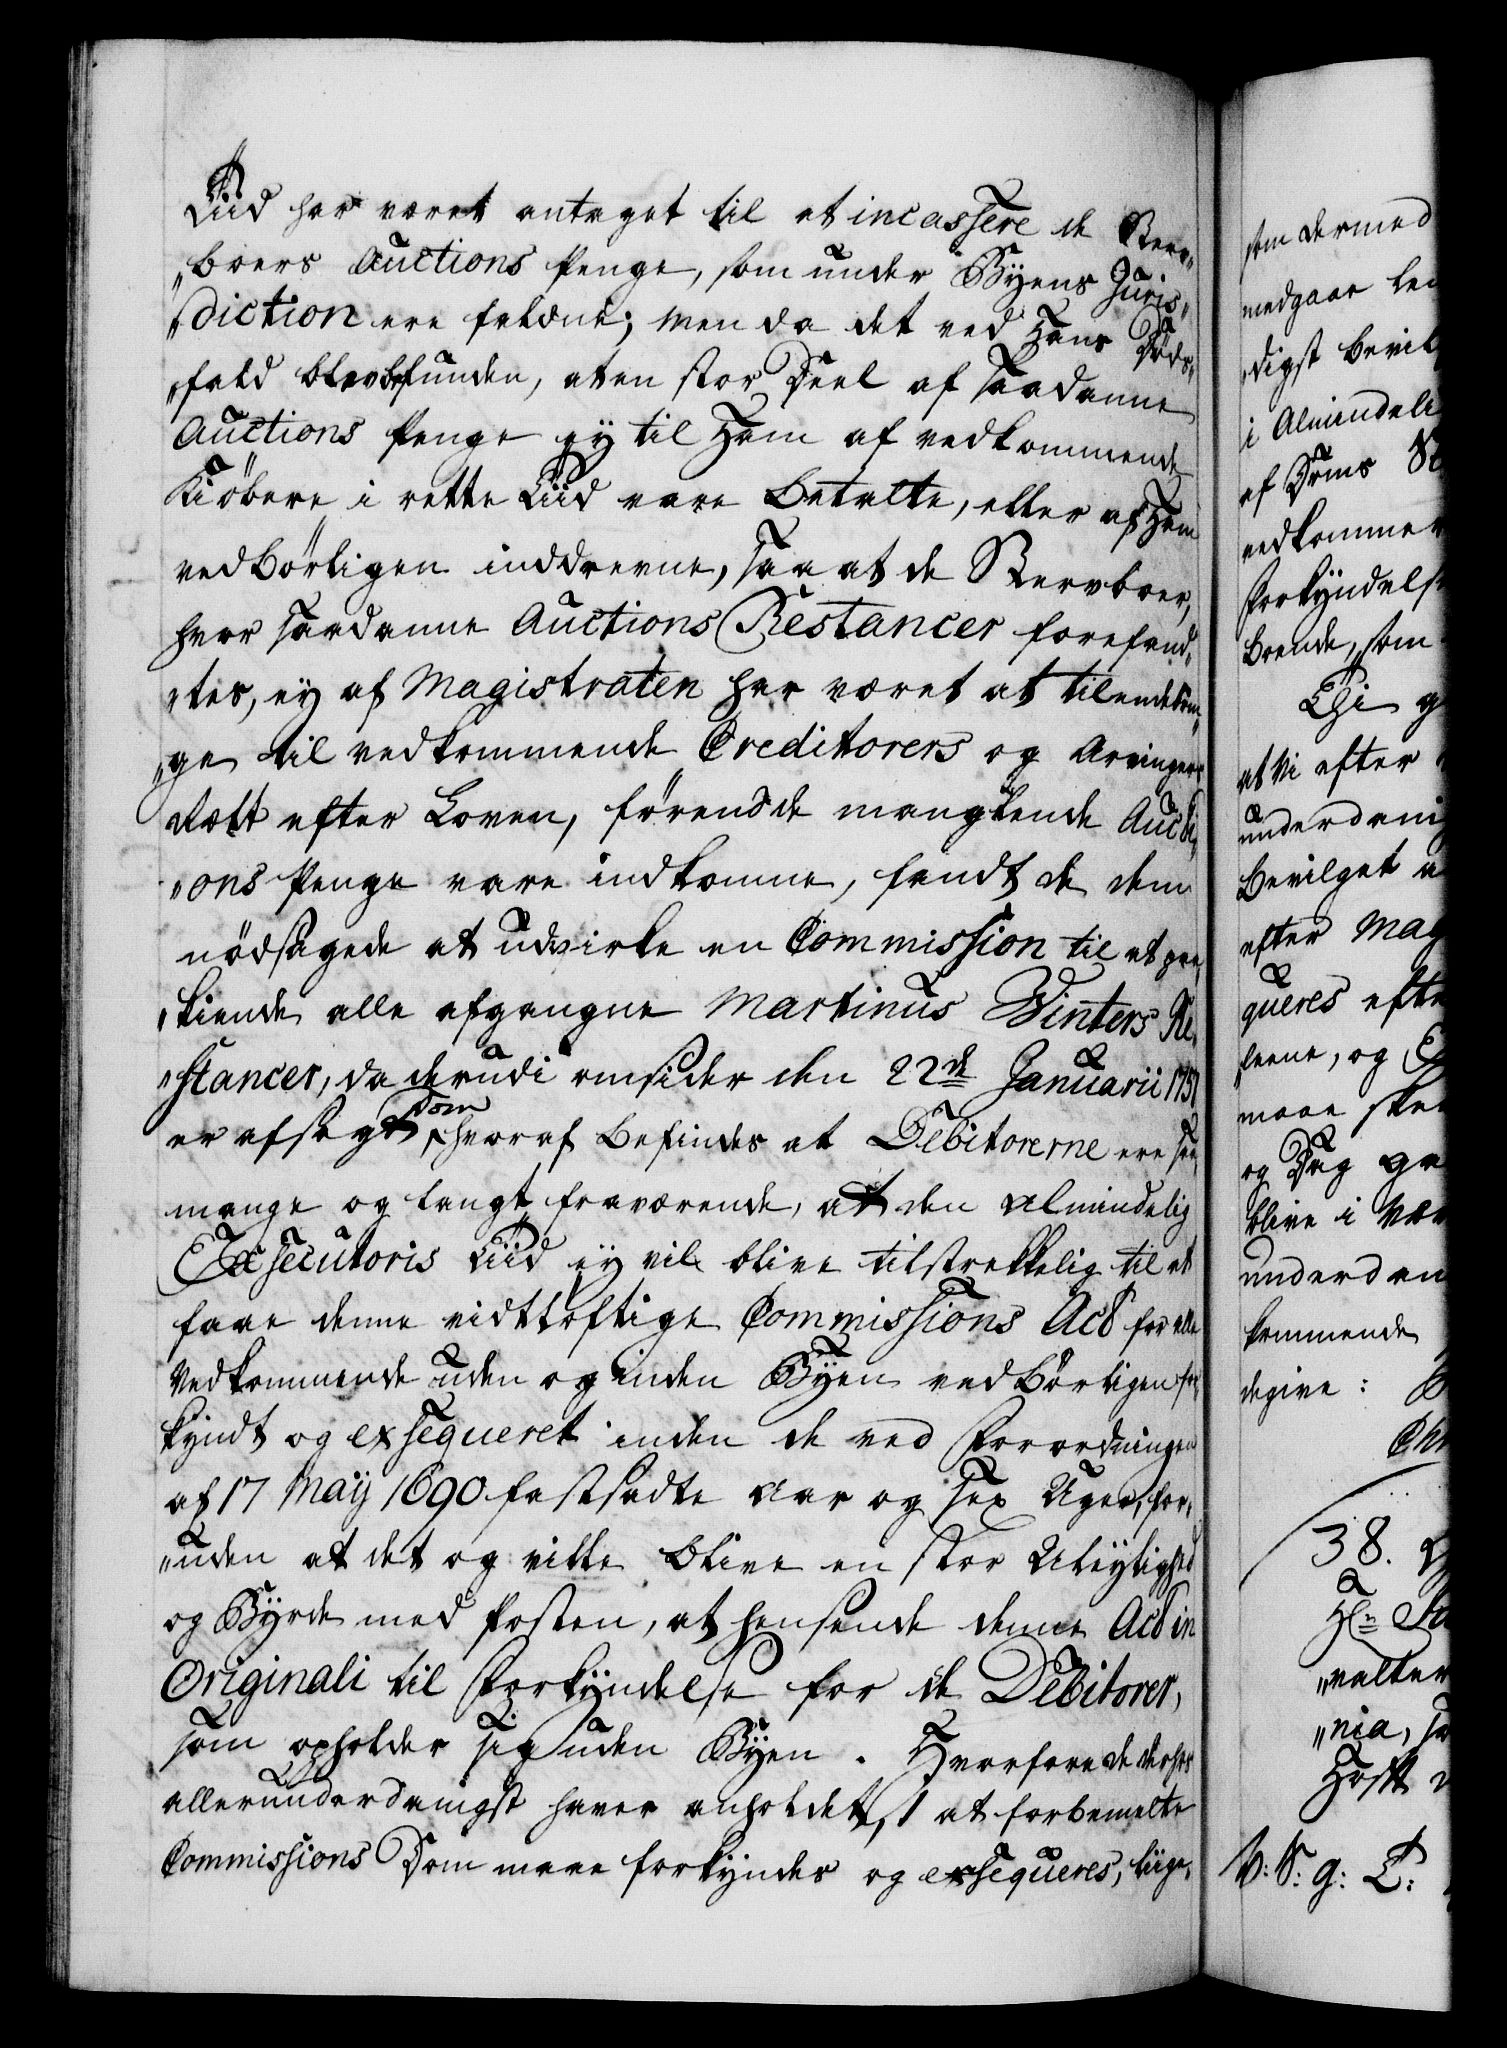 Tiid har været antaget til at incassere de Sterv„
„boers Auctions Penge, som under Byens Juris„
„diction ere faldne; Men da det ved Hans Døds„
„fald blev befunden, at en stor Deel af saadanne
Auctions Penge ey til Ham af vedkommende
Kiöbere i rette Tiid vare betalte, eller af Ham
vedbörligen inddrevne, saa at de Stervboer,
hvor saadanne Auctions Restancer forefand„
„tes, ey af Magistraten har været at tilendebrin„
„ge til vedkommende Creditorers og Arvingers
Rætt efter Loven, förend de manglende Aucti„
„ons Penge vare indkomne, fandt de dem
nödsagede at udvirke en Commission til at paa„
„kiende alle afgangne Martinus Winters Re„
„stancer, da derudi omsider den 22de Januarii 1751
er afsagt Dom, hvoraf befindes at Debitorerne ere saa
mange og langt fraværende, at den almindelig
Exsecutoris Tiid ey vil blive tilstrekkelig til at
faae denne vidtløftige Commissions Act for alle
Vedkommende uden og inden Byen vedbörligen for„
kyndt og exsequeret inden de ved Forordningen
af 17 Maij 1690 fastsadte Aar og sex Uger, for„
„uden at det og ville blive en stor Uleylighed
og Byrde med Posten, at hensende denne Act in
Originali til Forkyndelse for de Debitorer,
som opholder sig uden Byen. Hvorfore de derhos
allerunderdanigst haver anholdet, at forbemelte
Commissions Dom maae forkyndes og exsequeres, liige„
som dermed
medgaar
„digst bevil
i Almindeli
af Doms
vedkomme
Forkyndelse
boende, som
Thi
at Vi efter
underdanig
bevilget
efter Mag
queres efte
„serne, og
maae skee
og Dag
blive i
underdan
kommende
degive:
38.
Hr
„valter
„nia,
Höst
V: S: g: T: